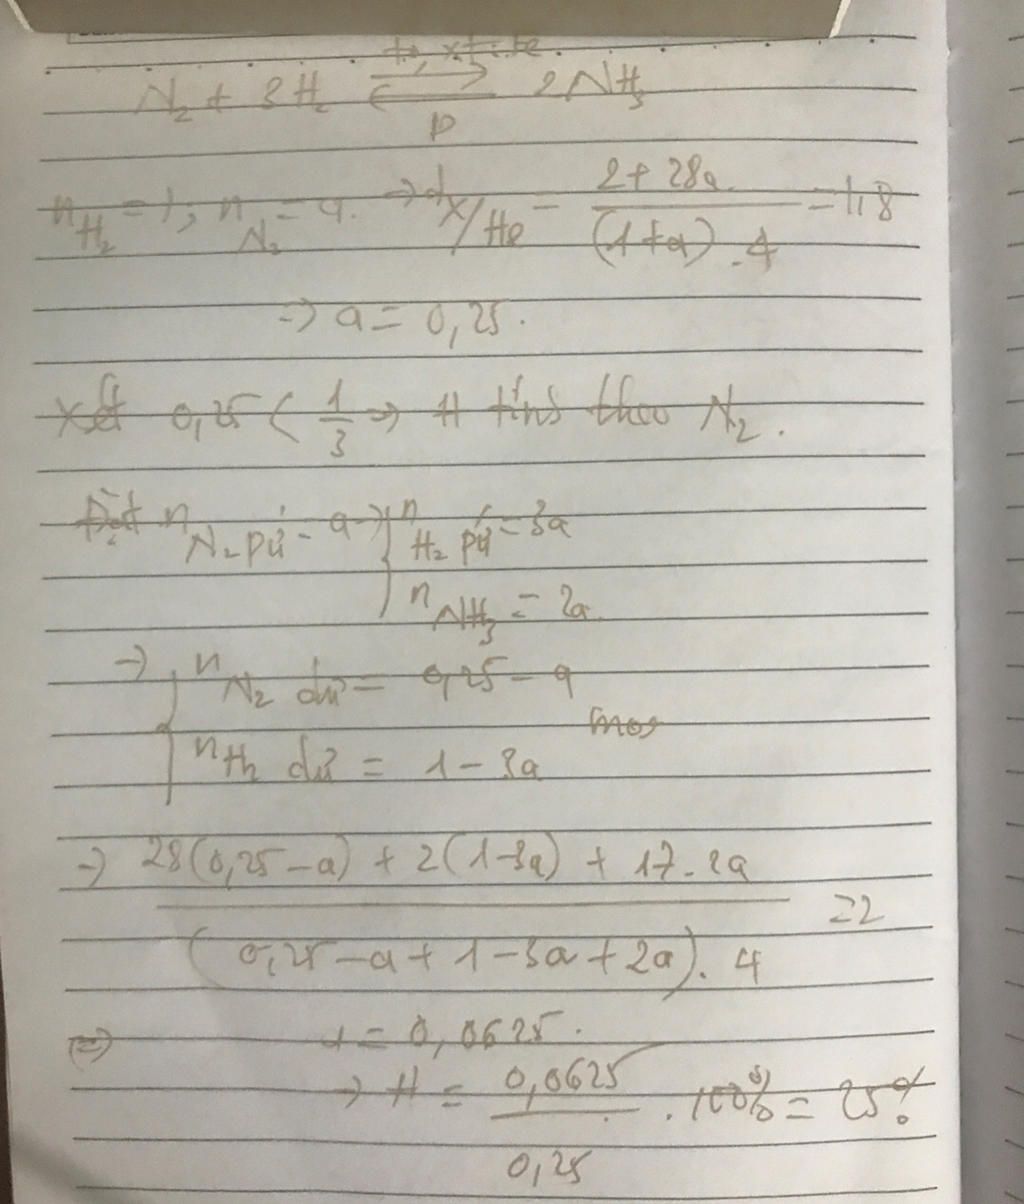 t°, xt: Fe
N₂ + 3H₂ ⇌ 2NH₃
p
n H₂ = 1; n N₂ = a. → d X/He = (2 + 28a) / ((1+a).4) = 1,8
→ a = 0,25.
Xét 0,25 < 1/3 → H tính theo N₂.
Đặt n N₂ pứ = a → { n H₂ pứ = 3a
n NH₃ = 2a.
→ { n N₂ dư = 0,25 - a
mol
n H₂ dư = 1 - 3a
→ (28(0,25 - a) + 2(1-3a) + 17.2a) / ((0,25 - a + 1 - 3a + 2a).4) = 2
(=) a = 0,0625.
→ H = 0,0625 / 0,25 . 100% = 25%